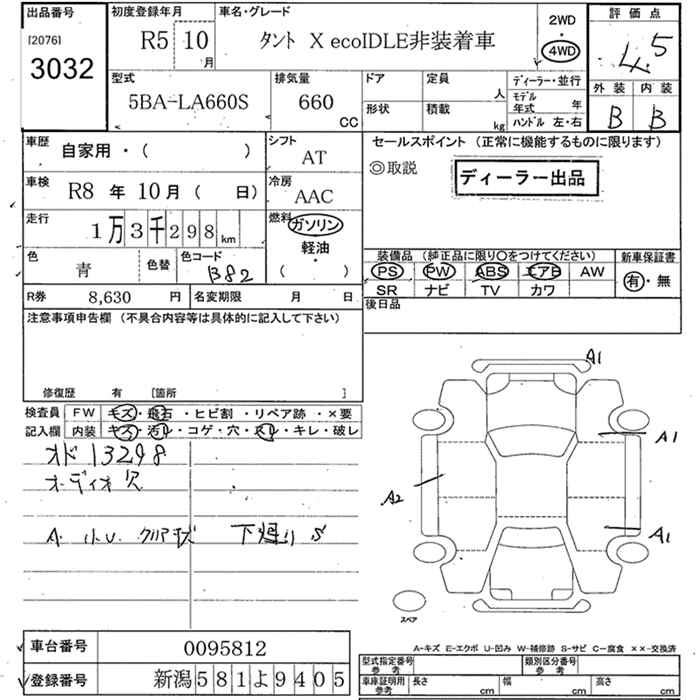 出品番号 初度登録年月 車名・グレード 2WD・4WD 評価点
[2076] R5 10月 タント X ecoIDLE非装着車 4.5
3032
型式 排気量 ドア 定員 人 ディーラー・並行 外装 内装
5BA-LA660S 660 CC 形状 積載 kg モデル年式 年 B B
ハンドル 左・右
車歴 自家用・( ) シフト AT セールスポイント (正常に機能するものに限ります)
◎取説 ディーラー出品
車検 R8年10月( 日) 冷房 AAC
走行 1万3千298km 燃料 ガソリン
軽油・
( )
色 青 色替 色コード B82
装備品 (純正品に限り〇をつけてください) 新車保証書
PS PW ABS エアB AW 有・無
SR ナビ TV カワ
R券 8,630 円 名変期限 月 日 後日品
注意事項申告欄 (不具合内容等は具体的に記入して下さい)
修復歴 有 [箇所 ]
検査員 FW キズ・飛石・ヒビ割・リペア跡・×要
記入欄 内装 キズ・汚レ・コゲ・穴・スレ・キレ・破レ
オド13298
オーディオ欠
A. 小U. クリア 下廻り S
A1
A1
A2
A1
スペア
A-キズ E-エクボ U-凹み W-補修跡 S-サビ C-腐食 ××-交換済
車台番号 0095812
登録番号 新潟581よ9405
型式指定番号 参考 類別区分番号 参考
車庫証明用 参考 長さ cm 幅 cm 高さ cm